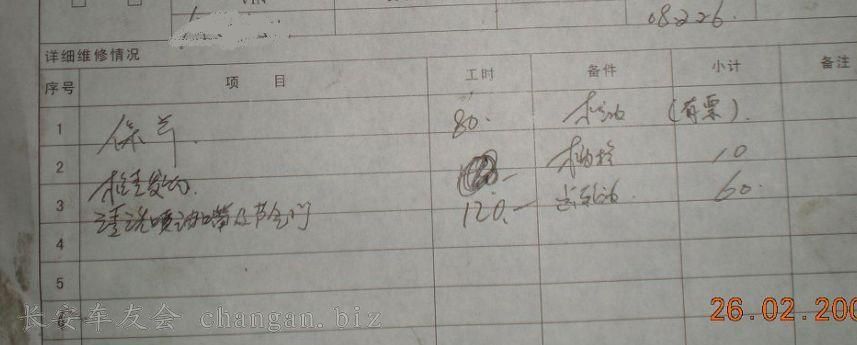 VIN
08.2.26.
详细维修情况
序号 项 目 工时 备件 小计 备注
1 保养 80. 机油 (有票).
2 检查发动 10
3 清洗喷油嘴及节气门 120.- 齿轮油 60.
4
5
6
长安车友会 changan.biz
26.02.200